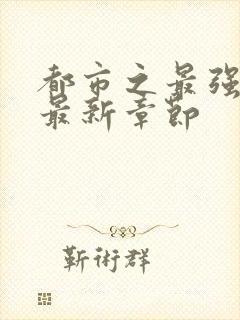 都市之最强
最新章節
靳術群